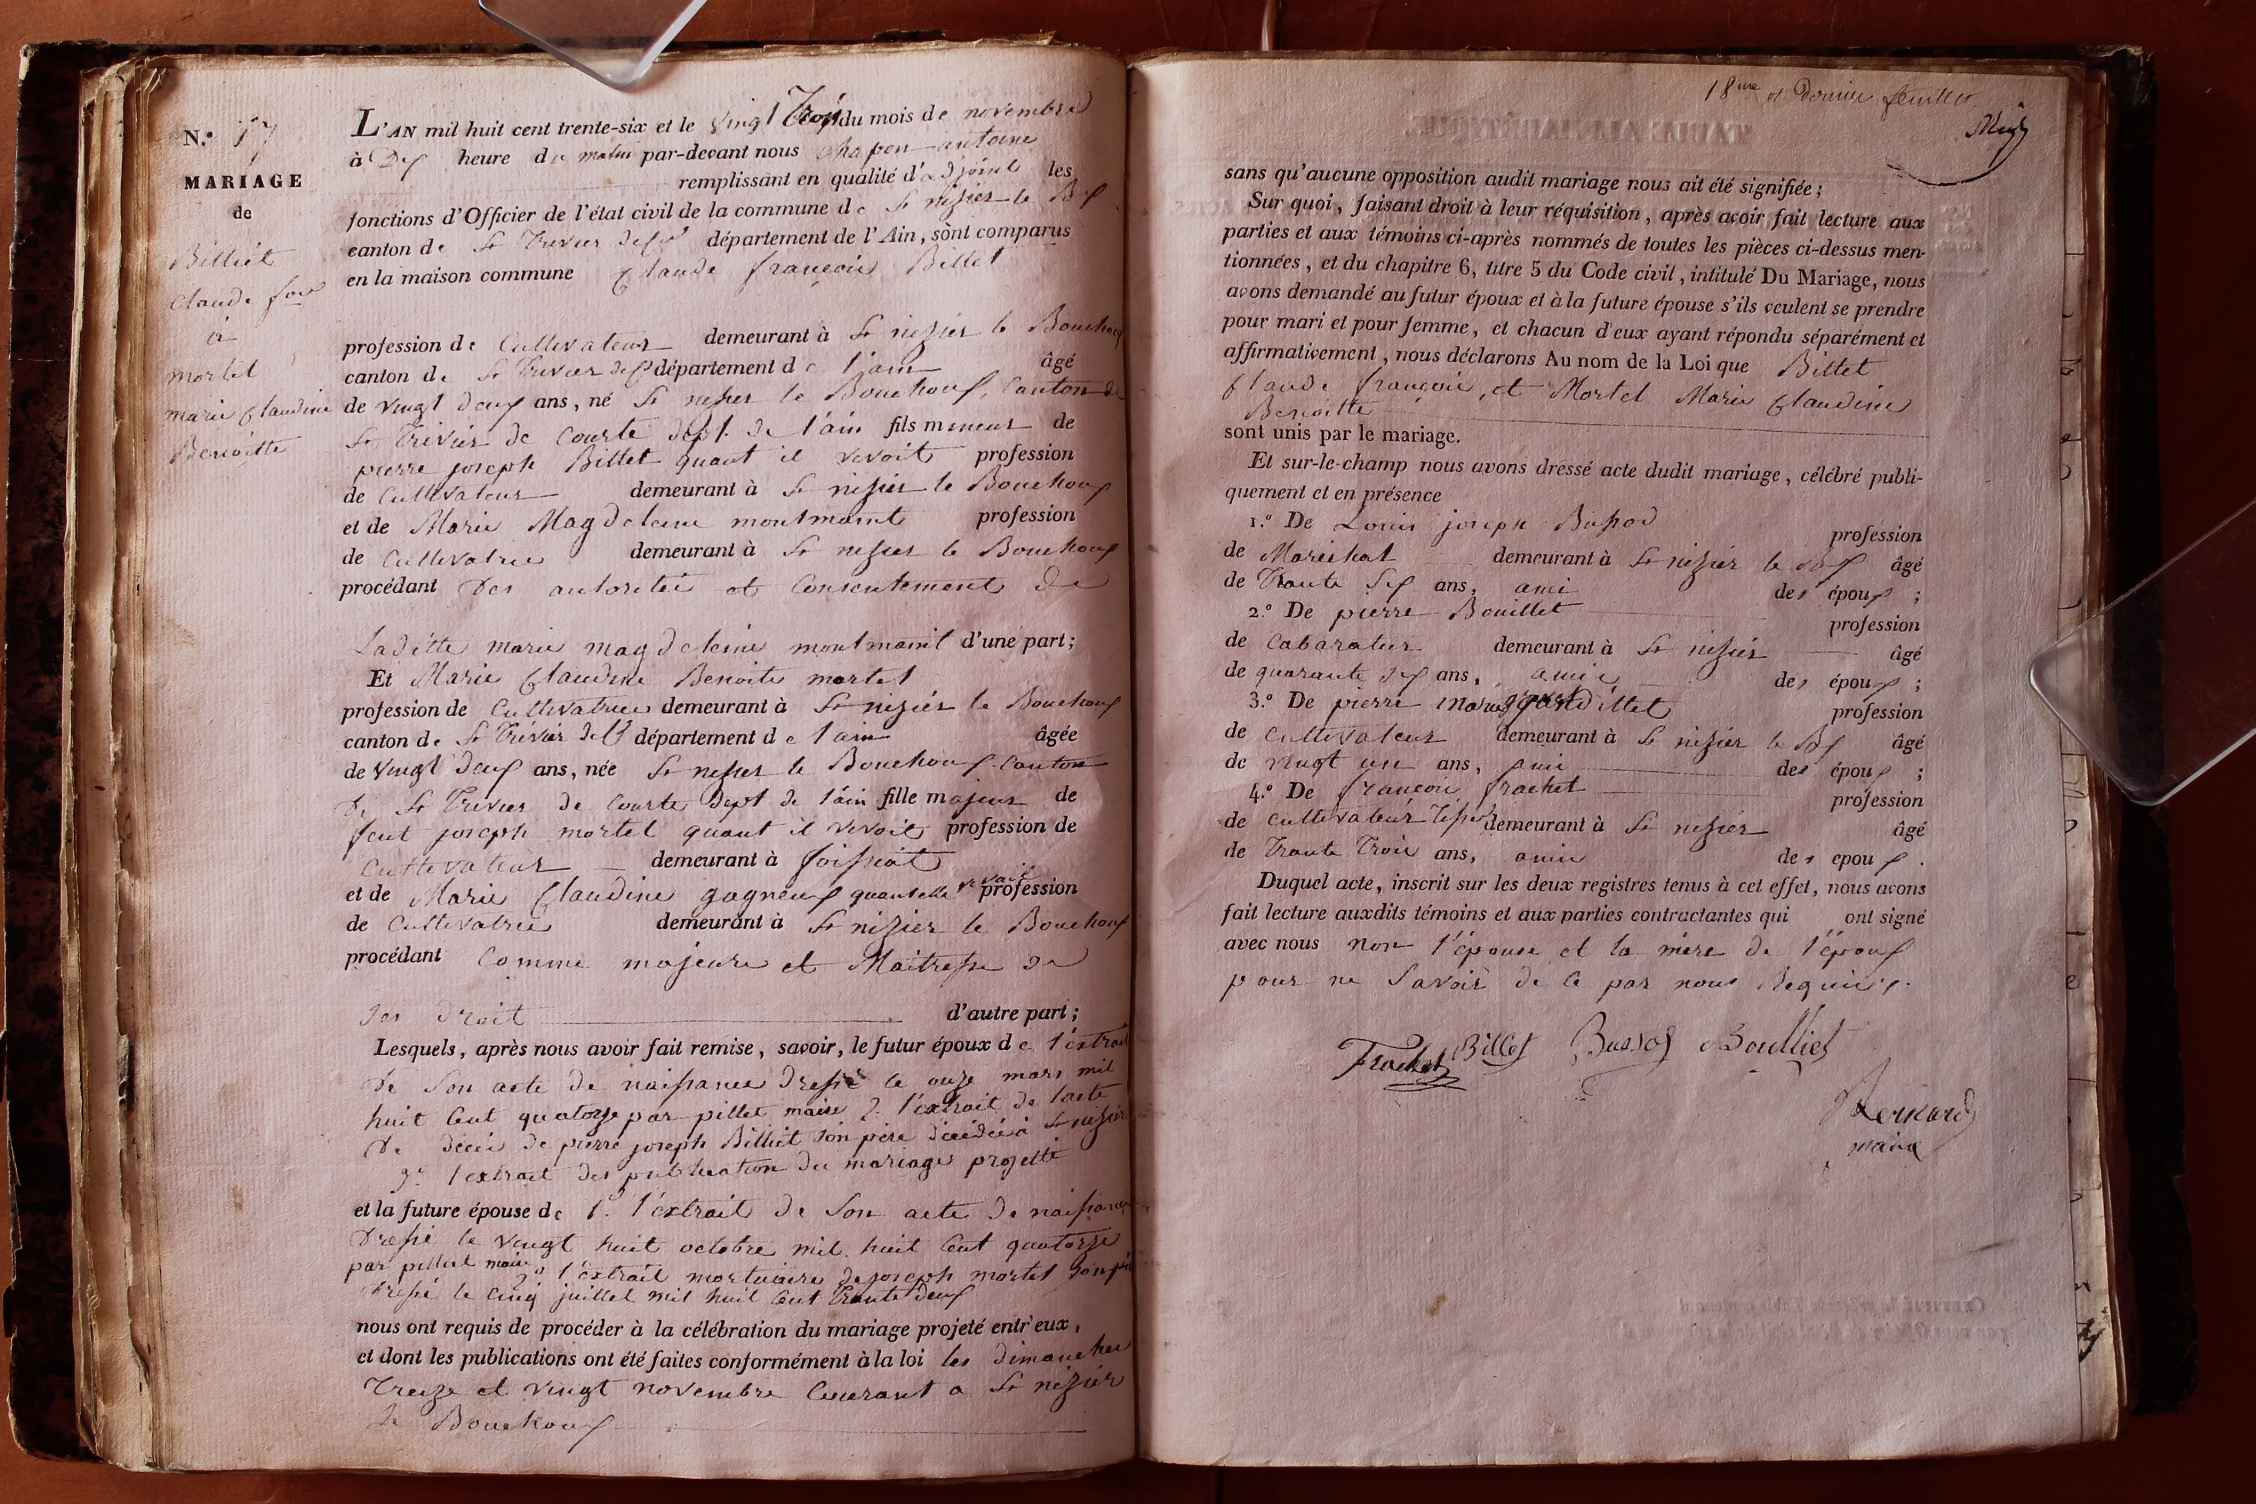 N.° 17
MARIAGE
de
Billiet
Claude fois
et
mortel
marie Claudine
Benoitte
L'AN mil huit cent trente-six et le vingt Trois du mois de novembre
à Dix heure du matin par-devant nous chapon antoine
remplissant en qualité d'adjoint les
fonctions d'Officier de l'état civil de la commune de St nizier le Bx
canton de St Trivier de Cte département de l'Ain, sont comparus
en la maison commune Claude françois Billet
profession de Cultivateur demeurant à St nizier le Bouchoux
canton de St Trivier de Cte département de l'ain âgé
de vingt deux ans, né St nizier le Bouchoux, Canton de
St Trivier de Courte dept. de l'ain fils mineur de
pierre joseph Billet quant il vivoit profession
de Cultivateur demeurant à St nizier le Bouchoux
et de Marie Magdeleine montmaint profession
de Cultivatrice demeurant à St nizier le Bouchoux
procédant des autoritéi et Consentement de
Laditte marie magdeleine montmaint d'une part;
Et Marie Claudine Benoite mortel
profession de Cultivatrice demeurant à St nizier le Bouchoux
canton de St Trivier de Cte département de l'ain âgée
de vingt deux ans, née St nizier le Bouchoux Canton
de St Trivier de Courte dept de l'ain fille majeur de
feut joseph mortel quant il vivoit profession de
Cultivateur demeurant à foissiat
et de Marie Claudine gagneux quantelle vivait profession
de Cultivatrice demeurant à St nizier le Bouchoux
procédant Comme majeure et Maitresse de
ses droit d'autre part;
Lesquels, après nous avoir fait remise, savoir, le futur époux de l'extrait
de Son acte de naissance Dressé le onze mars mil
huit Cent quatorze par pillet maire 2. l'extrait de l'acte
de décéi de pierre joseph Billiet son père décédé à St nizier
3.° l'extrait des publication du mariage projetté
et la future épouse de 1.° l'extrait de Son acte de naissance
Dressé le vingt huit octobre mil huit Cent quatorze
par pillet maire 2° l'extrait mortuaire de joseph mortel son père
Dressé le Cinq juillet mil huit Cent Trante deux
nous ont requis de procéder à la célébration du mariage projeté entr'eux,
et dont les publications ont été faites conformément à la loi les dimanches
Treize et vingt novembre Courant a St nizier
le Bouchoux
18me et Dernier feuillet
sans qu'aucune opposition audit mariage nous ait été signifiée;
Sur quoi, faisant droit à leur réquisition, après avoir fait lecture aux
parties et aux témoins ci-après nommés de toutes les pièces ci-dessus men-
tionnées, et du chapitre 6, titre 5 du Code civil, intitulé Du Mariage, nous
avons demandé au futur époux et à la future épouse s'ils veulent se prendre
pour mari et pour femme, et chacun d'eux ayant répondu séparément et
affirmativement, nous déclarons Au nom de la Loi que Billet
Claude françois, et Mortel Marie Claudine
Benoitte
sont unis par le mariage.
Et sur-le-champ nous avons dressé acte dudit mariage, célébré publi-
quement et en présence
1.° De Louis joseph Bussod profession
de Marechal demeurant à St nizier le Bx âgé
de Trante Six ans, ami des époux;
2.° De pierre Bouillet profession
de Cabaratier demeurant à St nizier âgé
de quarante six ans, amie des époux;
3.° De pierre marie Billet profession
de Cultivateur demeurant à St nizier le Bx âgé
de vingt un ans, des époux;
4.° De françoi frachet profession
de Cultivateur demeurant à St nizier âgé
de Trante Troie ans, amie des epoux.
Duquel acte, inscrit sur les deux registres tenus à cet effet, nous avons
fait lecture auxdits témoins et aux parties contractantes qui ont signé
avec nous non l'épouse et la mère de l'époux
pour ne Savoir de ce par nous Requis.
Frachet Billet Bussod Boulliet
Bernard
maire